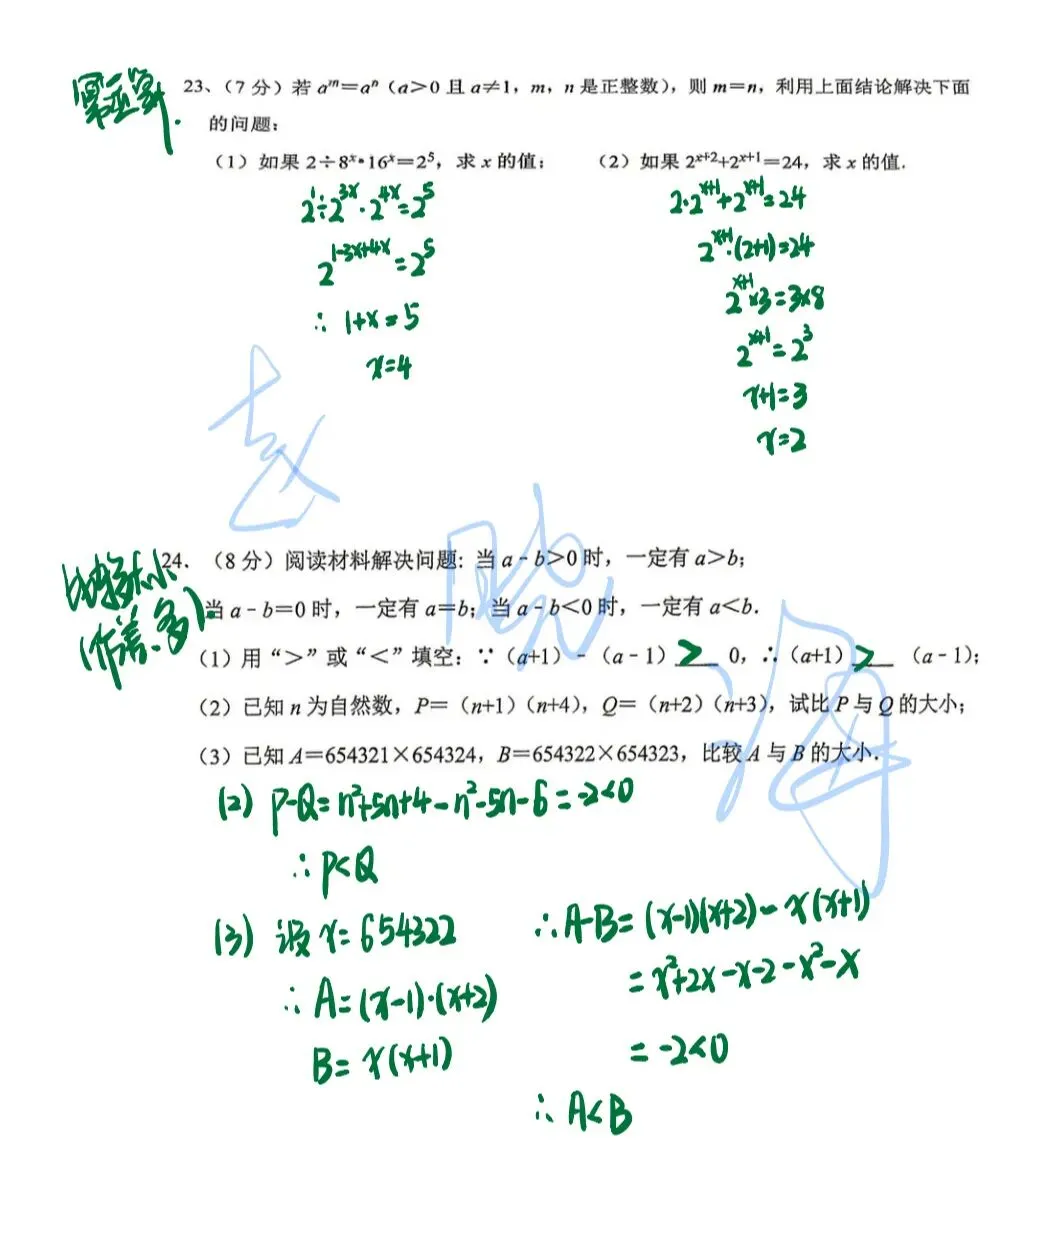 幂运算.
23、（7 分）若 aᵐ＝aⁿ（a＞0 且 a≠1，m，n 是正整数），则 m＝n，利用上面结论解决下面
的问题：
（1）如果 2÷8ˣ•16ˣ＝2⁵，求 x 的值； （2）如果 2ˣ⁺²+2ˣ⁺¹＝24，求 x 的值.
2¹÷2³ˣ·2⁴ˣ=2⁵
2¹⁻³ˣ⁺⁴ˣ=2⁵
∴ 1+x=5
x=4
2·2ˣ⁺¹+2ˣ⁺¹=24
2ˣ⁺¹·(2+1)=24
2ˣ⁺¹×3=3×8
2ˣ⁺¹=2³
x+1=3
x=2
比较大小
(作差、多).
24. （8 分）阅读材料解决问题: 当 a﹣b＞0 时，一定有 a＞b；
当 a﹣b=0 时，一定有 a＝b；当 a﹣b＜0 时，一定有 a＜b．
（1）用“＞”或“＜”填空：∵（a+1）﹣（a﹣1） > 0，∴（a+1） > （a﹣1）；
（2）已知 n 为自然数，P＝（n+1）（n+4），Q＝（n+2）（n+3），试比 P 与 Q 的大小；
（3）已知 A＝654321×654324，B＝654322×654323，比较 A 与 B 的大小．
(2) P-Q=n²+5n+4-n²-5n-6=-2<0
∴P<Q
(3) 设 x=654322
∴A=(x-1)·(x+2)
B=x(x+1)
∴A-B=(x-1)(x+2)-x(x+1)
=x²+2x-x-2-x²-x
=-2<0
∴A<B